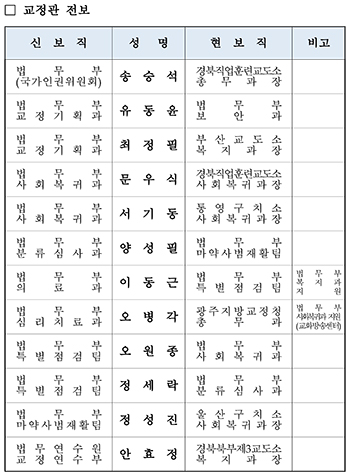 □ 교정관 전보
신 보 직 성 명 현 보 직 비고
법무부 (국가인권위원회) 송승석 경북직업훈련교도소 총무과장
법무부 교정기획과 유동윤 법무부 보안과
법무부 교정기획과 최정필 부산교도소 복지과장
법무부 사회복귀과 문우식 경북직업훈련교도소 사회복귀과장
법무부 사회복귀과 서기동 통영구치소 사회복귀과장
법무부 분류심사과 양성필 법무부 마약사범재활팀
법무부 의료과 이동근 법무부 특별점검팀 법무부 복지과 지원
법무부 심리치료과 오병각 광주지방교정청 총무과 법무부 사회복귀과 지원 (교화방송센터)
법무부 특별점검팀 오원종 법무부 사회복귀과
법무부 특별점검팀 정세락 법무부 분류심사과
법무부 마약사범재활팀 정성진 울산구치소 사회복귀과장
법무연수원 교정연수부 안효정 경북북부제3교도소 복지과장